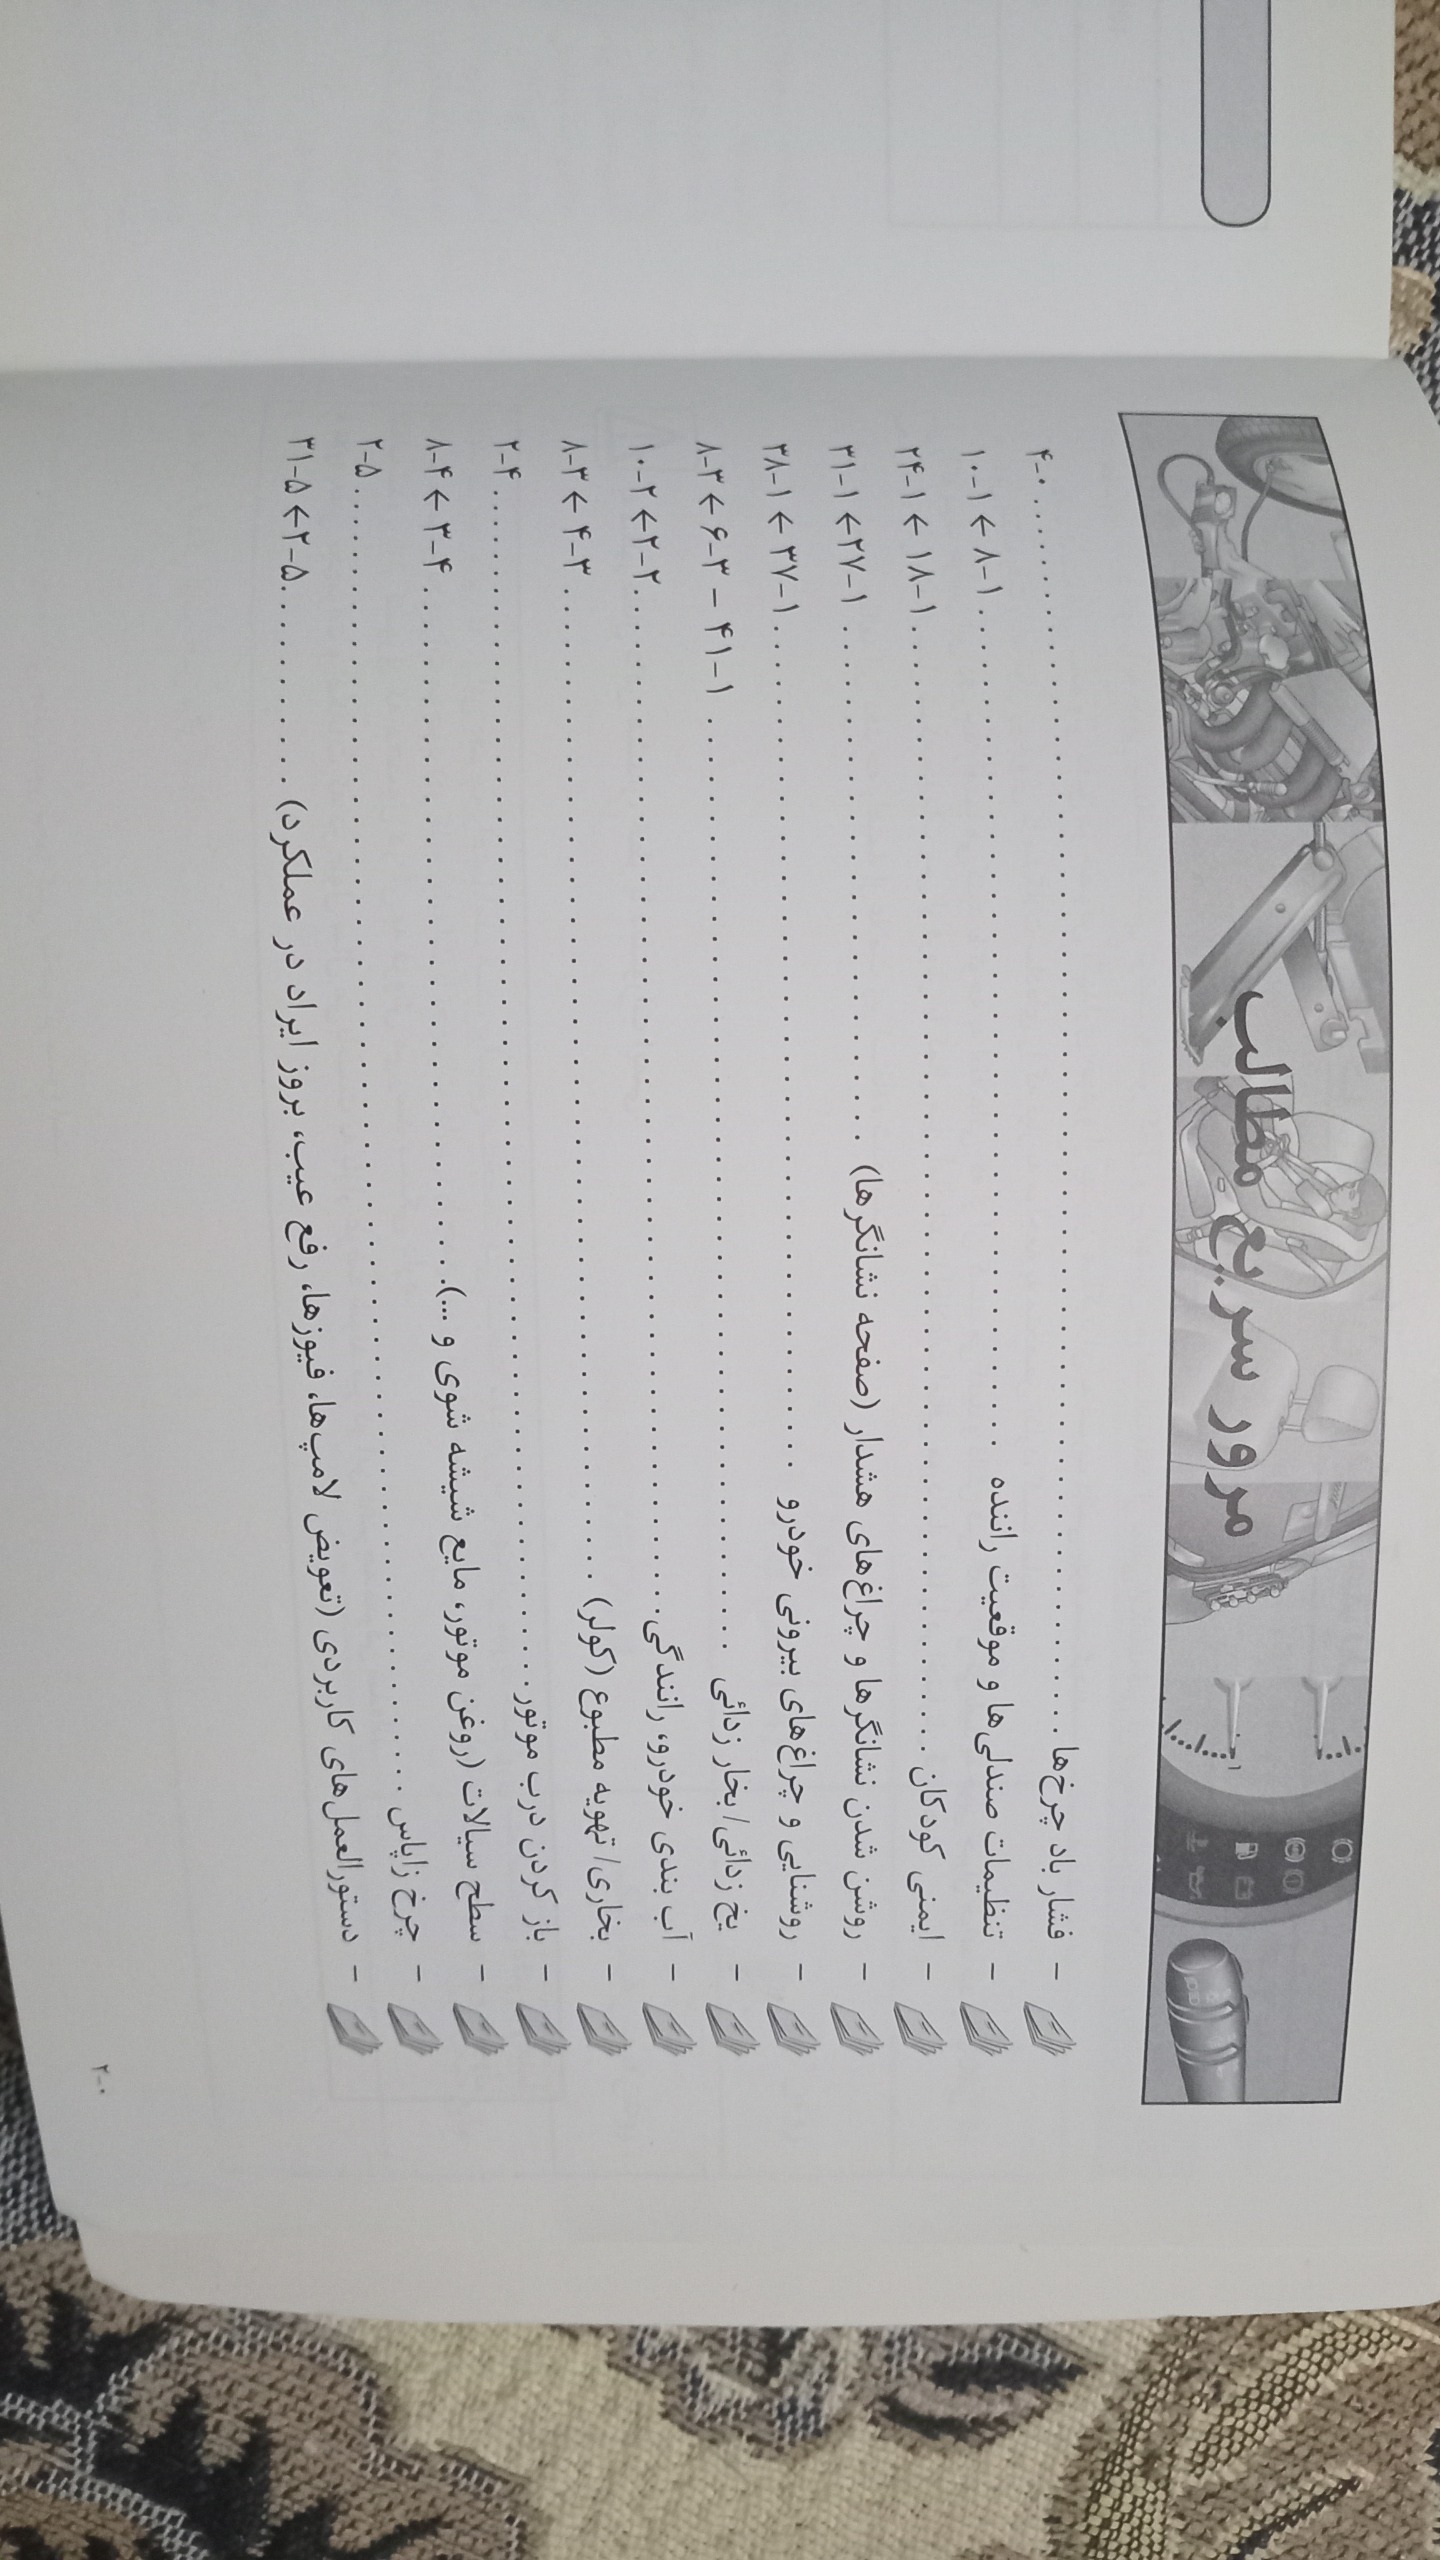 مرور سریع مطالب
- فشار باد چرخ‌ها . . . . . . . . . . ۰-۴
- تنظیمات صندلی‌ها و موقعیت راننده . . . . . . . . . . ۱-۸ ← ۱-۱۰
- ایمنی کودکان . . . . . . . . . . ۱-۱۸ ← ۱-۲۴
- روشن شدن نشانگرها و چراغ‌های هشدار (صفحه نشانگرها) . . . . . . . . . . ۱-۲۷ ← ۱-۳۱
- روشنایی و چراغ‌های بیرونی خودرو . . . . . . . . . . ۱-۳۷ ← ۱-۳۸
- یخ زدائی/ بخار زدائی . . . . . . . . . . ۱-۴۱ – ۳-۶ ← ۳-۸
- آب بندی خودرو، رانندگی . . . . . . . . . . ۲-۲ ← ۲-۱۰
- بخاری/ تهویه مطبوع (کولر) . . . . . . . . . . ۳-۴ ← ۳-۸
- باز کردن درب موتور . . . . . . . . . . ۴-۲
- سطح سیالات (روغن موتور، مایع شیشه شوی و ...) . . . . . . . . . . ۴-۳ ← ۴-۸
- چرخ زاپاس . . . . . . . . . . ۵-۲
- دستورالعمل‌های کاربردی (تعویض لامپ‌ها، فیوزها، رفع عیب، بروز ایراد در عملکرد) . . . . . . . . . . ۵-۲ ← ۵-۳۱
۰-۲